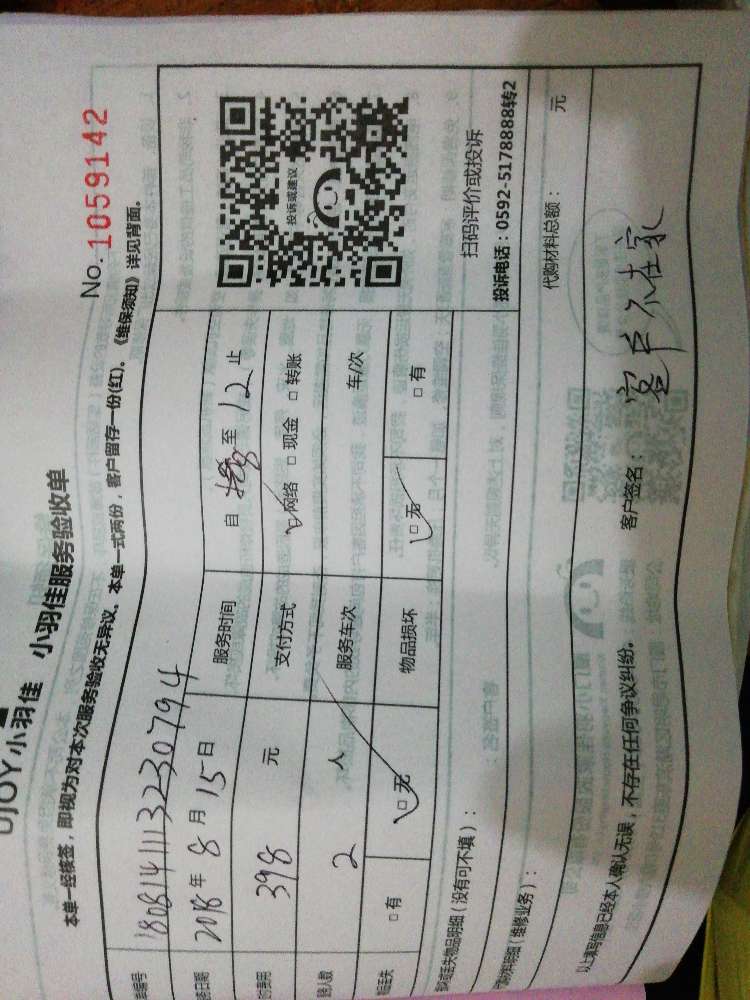 小羽佳 小羽佳服务验收单
No. 1059142
本单一经核签，即视为对本次服务验收无异议、本单一式两份，客户留存一份(红)。《维保须知》详见背面。
编号 180814111323230794
日期 2018 年 8 月 15 日 服务时间 自 至 12 止
费用 398 元 支付方式 □网络 □现金 □转账
人数 2 人 服务车次 车/次
丢失 □有 □无 物品损坏 □无 □有
投诉或建议
扫码评价或投诉
投诉电话：0592-5178888转2
丢失物品明细（没有可不填）：
明细（维修业务）： 代购材料总额： 元
以上填写信息已经本人确认无误，不存在任何争议纠纷。 客户签名： 客户不在家